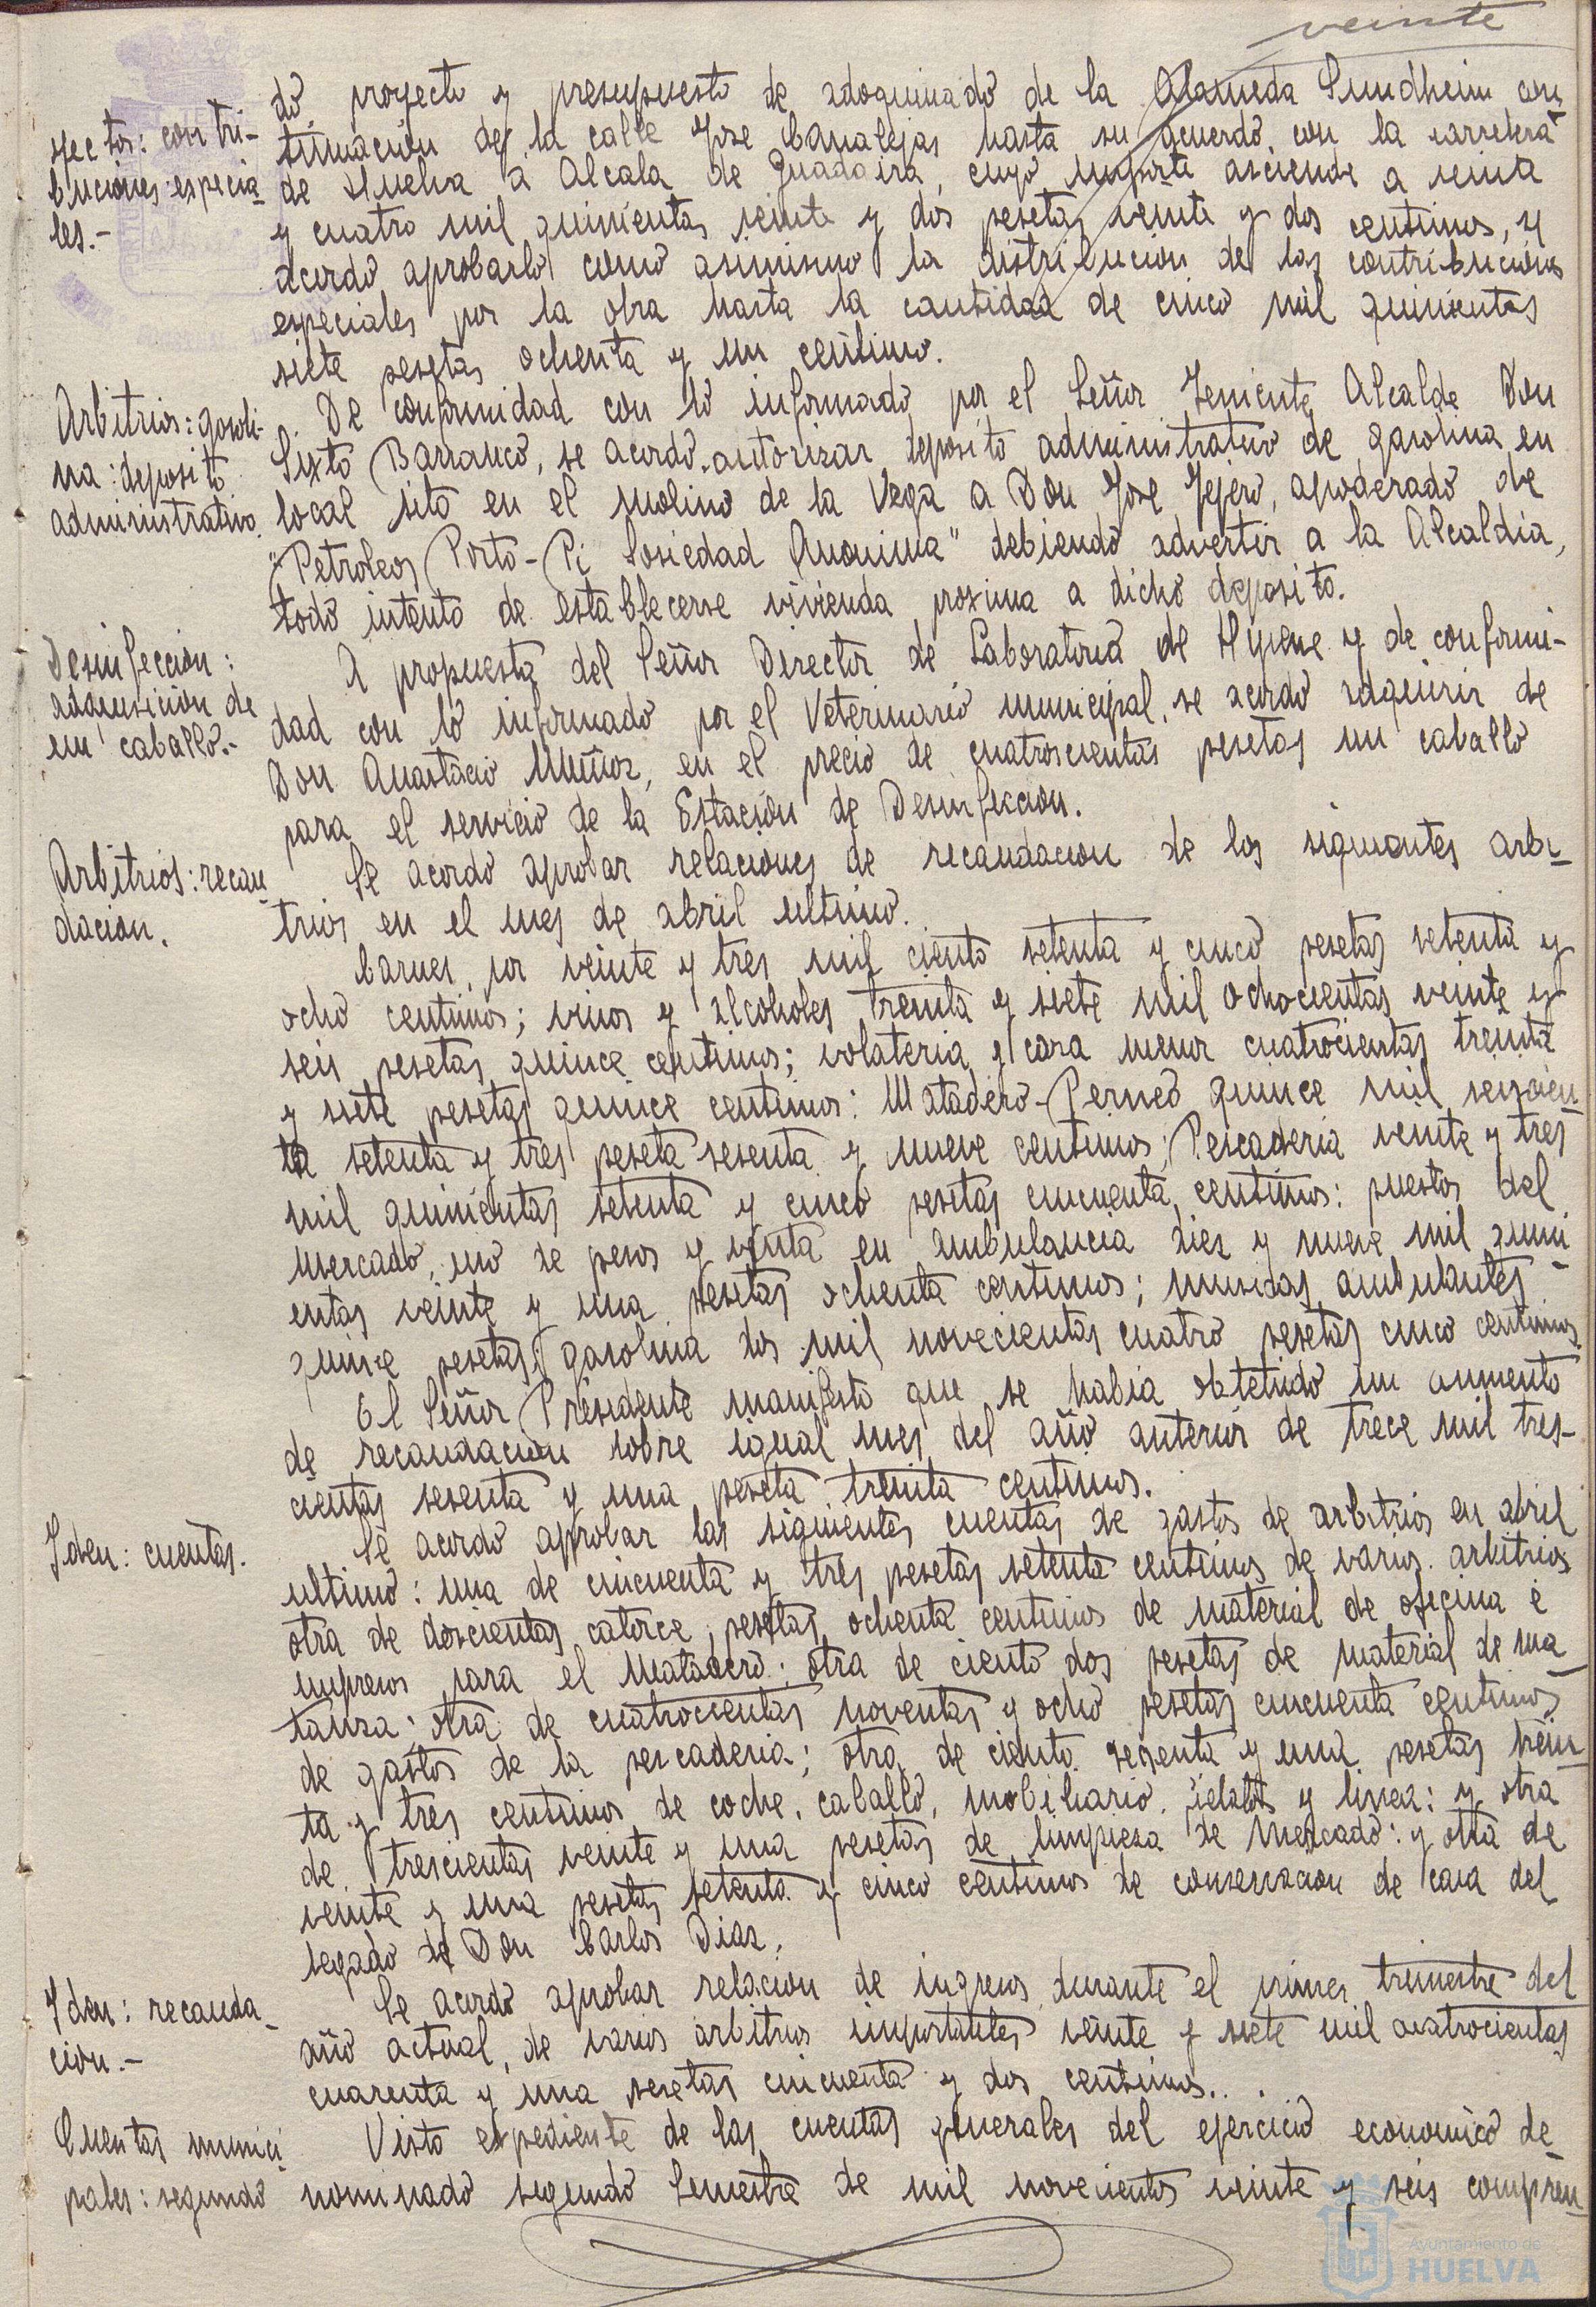 veinte
do, proyecto y presupuesto de adoquinado de la Alameda Sundheim con
yectos: contri-
tinuacion de la calle Jose Canalejas hasta su acuerdo con la carretera
buciones especia
de Huelva a Alcala de Guadaira, cuyo importe asciende a
les.-
y cuatro mil quinientas veinte y dos pesetas veinte y dos centimos, se
acordo aprobarlo como asimismo la distribucion de las contribuciones
especiales por la obra hasta la cantidad de cinco mil quinientas
siete pesetas ochenta y un centimo.
Arbitrios: gasoli-
De conformidad con lo informado por el Señor Teniente Alcalde Don
na: deposito
Sixto Barranco, se acordo autorizar deposito administrativo de gasolina en
administrativo.
local sito en el molino de la Vega a Don Jose Tejero, apoderado de
"Petroleos Porto-Pi Sociedad Anonima" debiendo advertir a la Alcaldia,
todo intento de establecerse vivienda proxima a dicho deposito.
Desinfeccion:
A propuesta del Señor Director de Laboratorio de Higiene y de conformi-
adquisicion de
dad con lo informado por el Veterinario municipal, se acordo adquirir de
un caballo.-
Don Anastacio Muñoz, en el precio de cuatroscientas pesetas un caballo
para el servicio de la Estación de Desinfeccion.
Arbitrios: recau
Se acordo aprobar relaciones de recaudacion de los siguientes arbi-
dacion.
trios en el mes de abril ultimo.
Carnes, por veinte y tres mil ciento setenta y cinco pesetas setenta y
ocho centimos; vinos y alcoholes treinta y siete mil ochocientas veinte y
seis pesetas quince centimos; volateria y caza menor cuatrocientas treinta
y siete pesetas quince centimos: Matadero-Perneo quince mil seiscien
ta setenta y tres peseta sesenta y nueve centimos; Pescaderia veinte y tres
mil quinientas setenta y cinco pesetas cincuenta centimos: puestos del
Mercado, uso de pesos y venta en ambulancia diez y nueve mil quini
entas veinte y una pesetas ochenta centimos; musicas ambulantes
quince pesetas; gasolina dos mil novecientas cuatro pesetas cinco centimos
El Señor Presidente manifesto que se habia obtenido un aumento
de recaudacion sobre igual mes del año anterior de trece mil tres-
cientas sesenta y una peseta treinta centimos.
Iden: cuentas.
Se acordo aprobar las siguientes cuentas de gastos de arbitrios en abril
ultimo: una de cincuenta y tres pesetas setenta centimos de varios arbitrios
otra de doscientas catorce pesetas ochenta centimos de material de oficina e
impresos para el Matadero; otra de ciento dos pesetas de material de ma
tanza; otra de cuatrocientas noventas y ocho pesetas cincuenta centimos
de gastos de la pescaderia; otra de ciento sesenta y una pesetas trein
ta y tres centimos de coche, caballo, mobiliario, y linea: y otra
de trescientas veinte y una pesetas de limpieza de Mercado: y otra de
veinte y una pesetas setenta y cinco centimos de conservacion de casa del
legado de Don Carlos Diaz.
Iden: recauda
Se acordo aprobar relacion de ingresos durante el primer trimestre del
cion.-
año actual, de varios arbitrios importantes veinte y siete mil cuatrocientas
cuarenta y una pesetas cincuenta y dos centimos.
Cuentas munici
Visto expediente de las cuentas generales del ejercicio economico de
pales: segundo
nominado segundo Semestre de mil novecientos veinte y seis compren
Ayuntamiento de
HUELVA